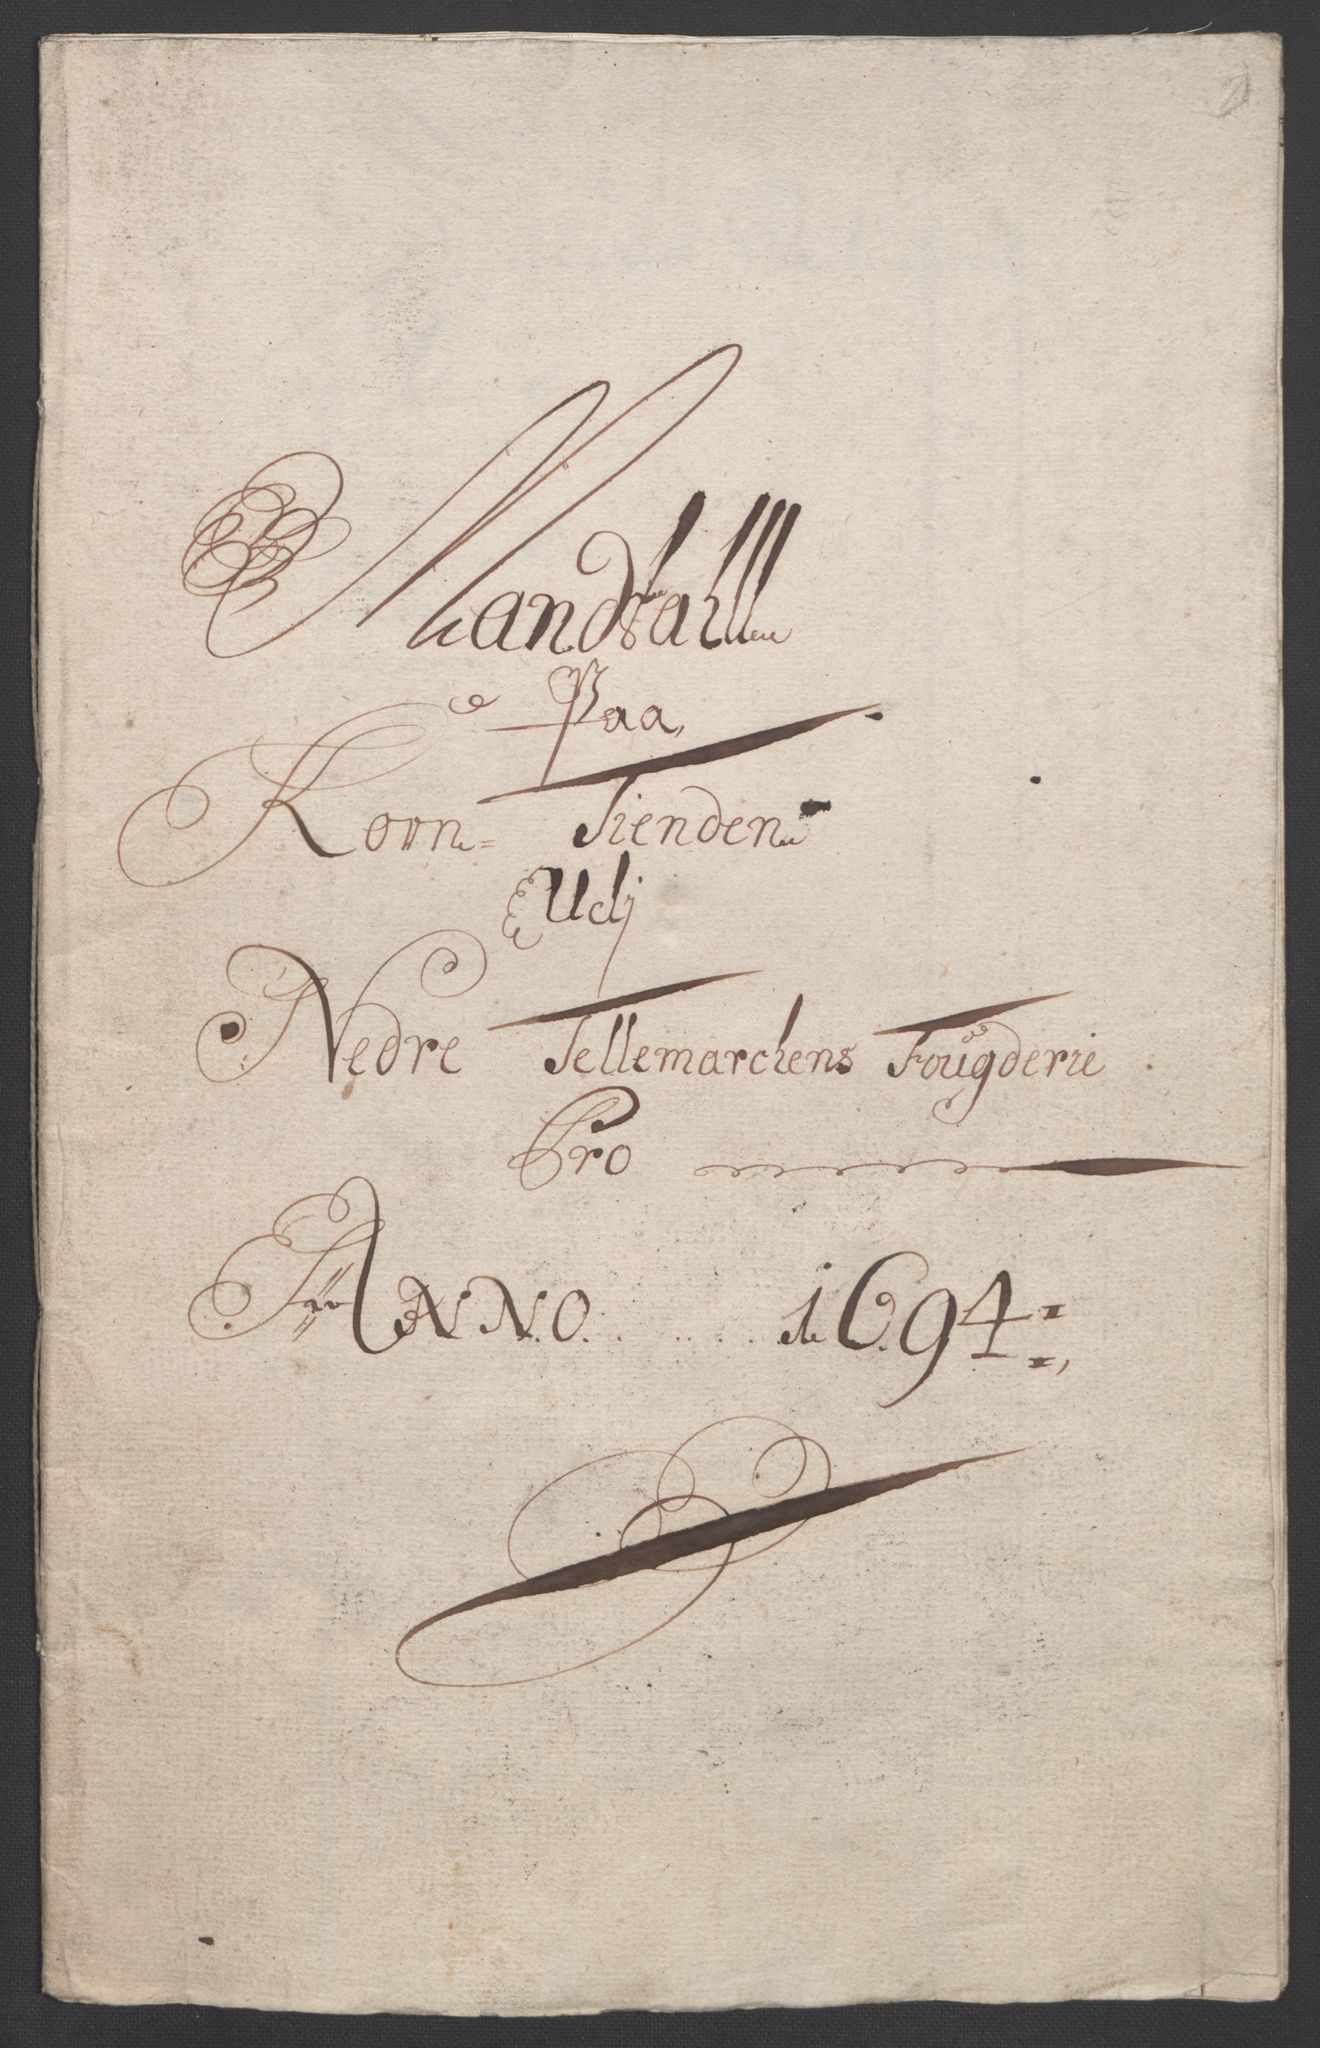 Mandtall
Paa
Korn= Tienden
Udj
Nedre Tellemarchens Fougderie
Pro
ANNO 1694